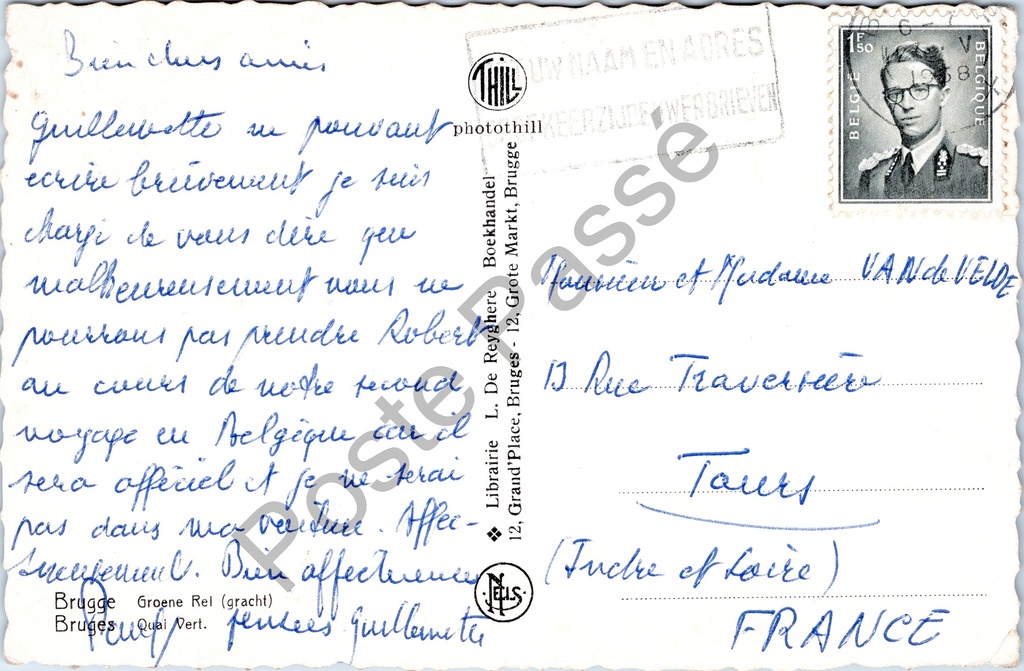 Bien chers amis
Guillemette ne pouvant
écrire brièvement je suis
chargé de vous dire que
malheureusement nous ne
pourrons pas prendre Robert
au cours de notre second
voyage en Belgique car il
sera officiel et je ne serai
pas dans ma voiture. Affec-
tueusement. Bien affectueuses
pensées Guillemette
Brugge Groene Rei (gracht)
Bruges Quai Vert.
THILL
photothill
❖ Librairie L. De Reyghere Boekhandel
12, Grand'Place, Bruges - 12, Grote Markt, Brugge
NELS
UW NAAM EN ADRES
KEERZIJDE UWER BRIEVEN
6 -
V
1958
1F50
BELGIE BELGIQUE
Monsieur et Madame VAN de VELDE
13 Rue Traversière
Tours
(Indre et Loire)
FRANCE
Poste Passé